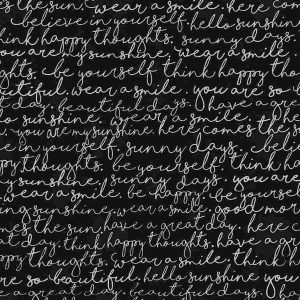 es the sun. wear a smile. here com
believe in yourself. hello sunshine
think happy thoughts. sunny days.
you are my sunshine. wear a smile.
ghts. be yourself. think happy thou
utiful. wear a smile. you are so
day. beautiful days. have a gre
sunshine. wear a smile.
you are my sunshine. here comes the
e in yourself. sunny days. bel
ppy thoughts. be yourself. think h
sunshine. sunny days. you are my
wear a smile. be happy. be yourse
ing sunshine. wear a smile. good mor
es the sun. have a great day. here
day. think happy thoughts. have a gr
thoughts. wear a smile. think h
are so beautiful. hello sunshine. you
great day. beautiful days.